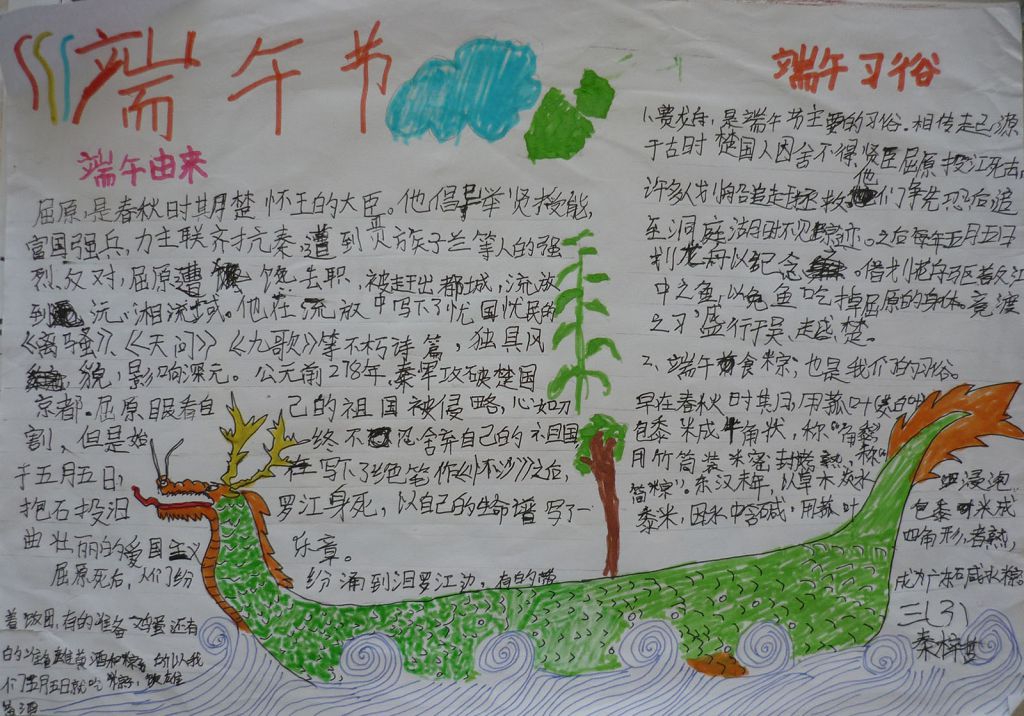 端午节
端午由来
屈原，是春秋时其月楚怀王的大臣。他倡导举贤授能，
富国强兵，力主联齐抗秦，遭到贵族子兰等人的强
烈反对，屈原遭馋去职，被赶出都城，流放
到沅，湘流域。他在流放中写下了忧国忧民的
《离骚》、《天问》《九歌》等不朽诗篇，独具风
貌，影响深元。公元前278年，秦军攻破楚国
京都。屈原眼看自己的祖国被侵略，心如刀
割，但是始终不忍舍弃自己的祖国
于五月五日，在写下了绝笔作《怀沙》之后，
抱石投汨罗江身死，以自己的生命谱写了一
曲壮丽的爱国主义乐章。
屈原死后，人们纷纷涌到汨罗江边，有的带
着饭团，有的准备鸡蛋还有
的准备雄黄酒和粽子，所以我
们五月五日就吃粽子，饮雄
黄酒
端午习俗
1、赛龙舟，是端午节主要的习俗。相传走己源
于古时楚国人因舍不得贤臣屈原投江死去，
许多人划船追赶拯救，他们争先恐后追
至洞庭湖时不见踪迹。之后每年五月五日
划龙舟以纪念。借划龙舟驱散江
中之鱼，以免鱼吃掉屈原的身体。竞渡
之习，盛行于吴、越、楚。
2、端午食粽，也是我们的习俗。
早在春秋时其月，用菰叶
包黍米成牛角状，称“角黍”
用竹筒装米密封烤熟，称“
筒粽”。东汉末年，以草木灰水浸泡
黍米，因水中含碱，用菰叶包黍米成
四角形，煮熟，
成为广东碱水粽
三(3)
秦梓